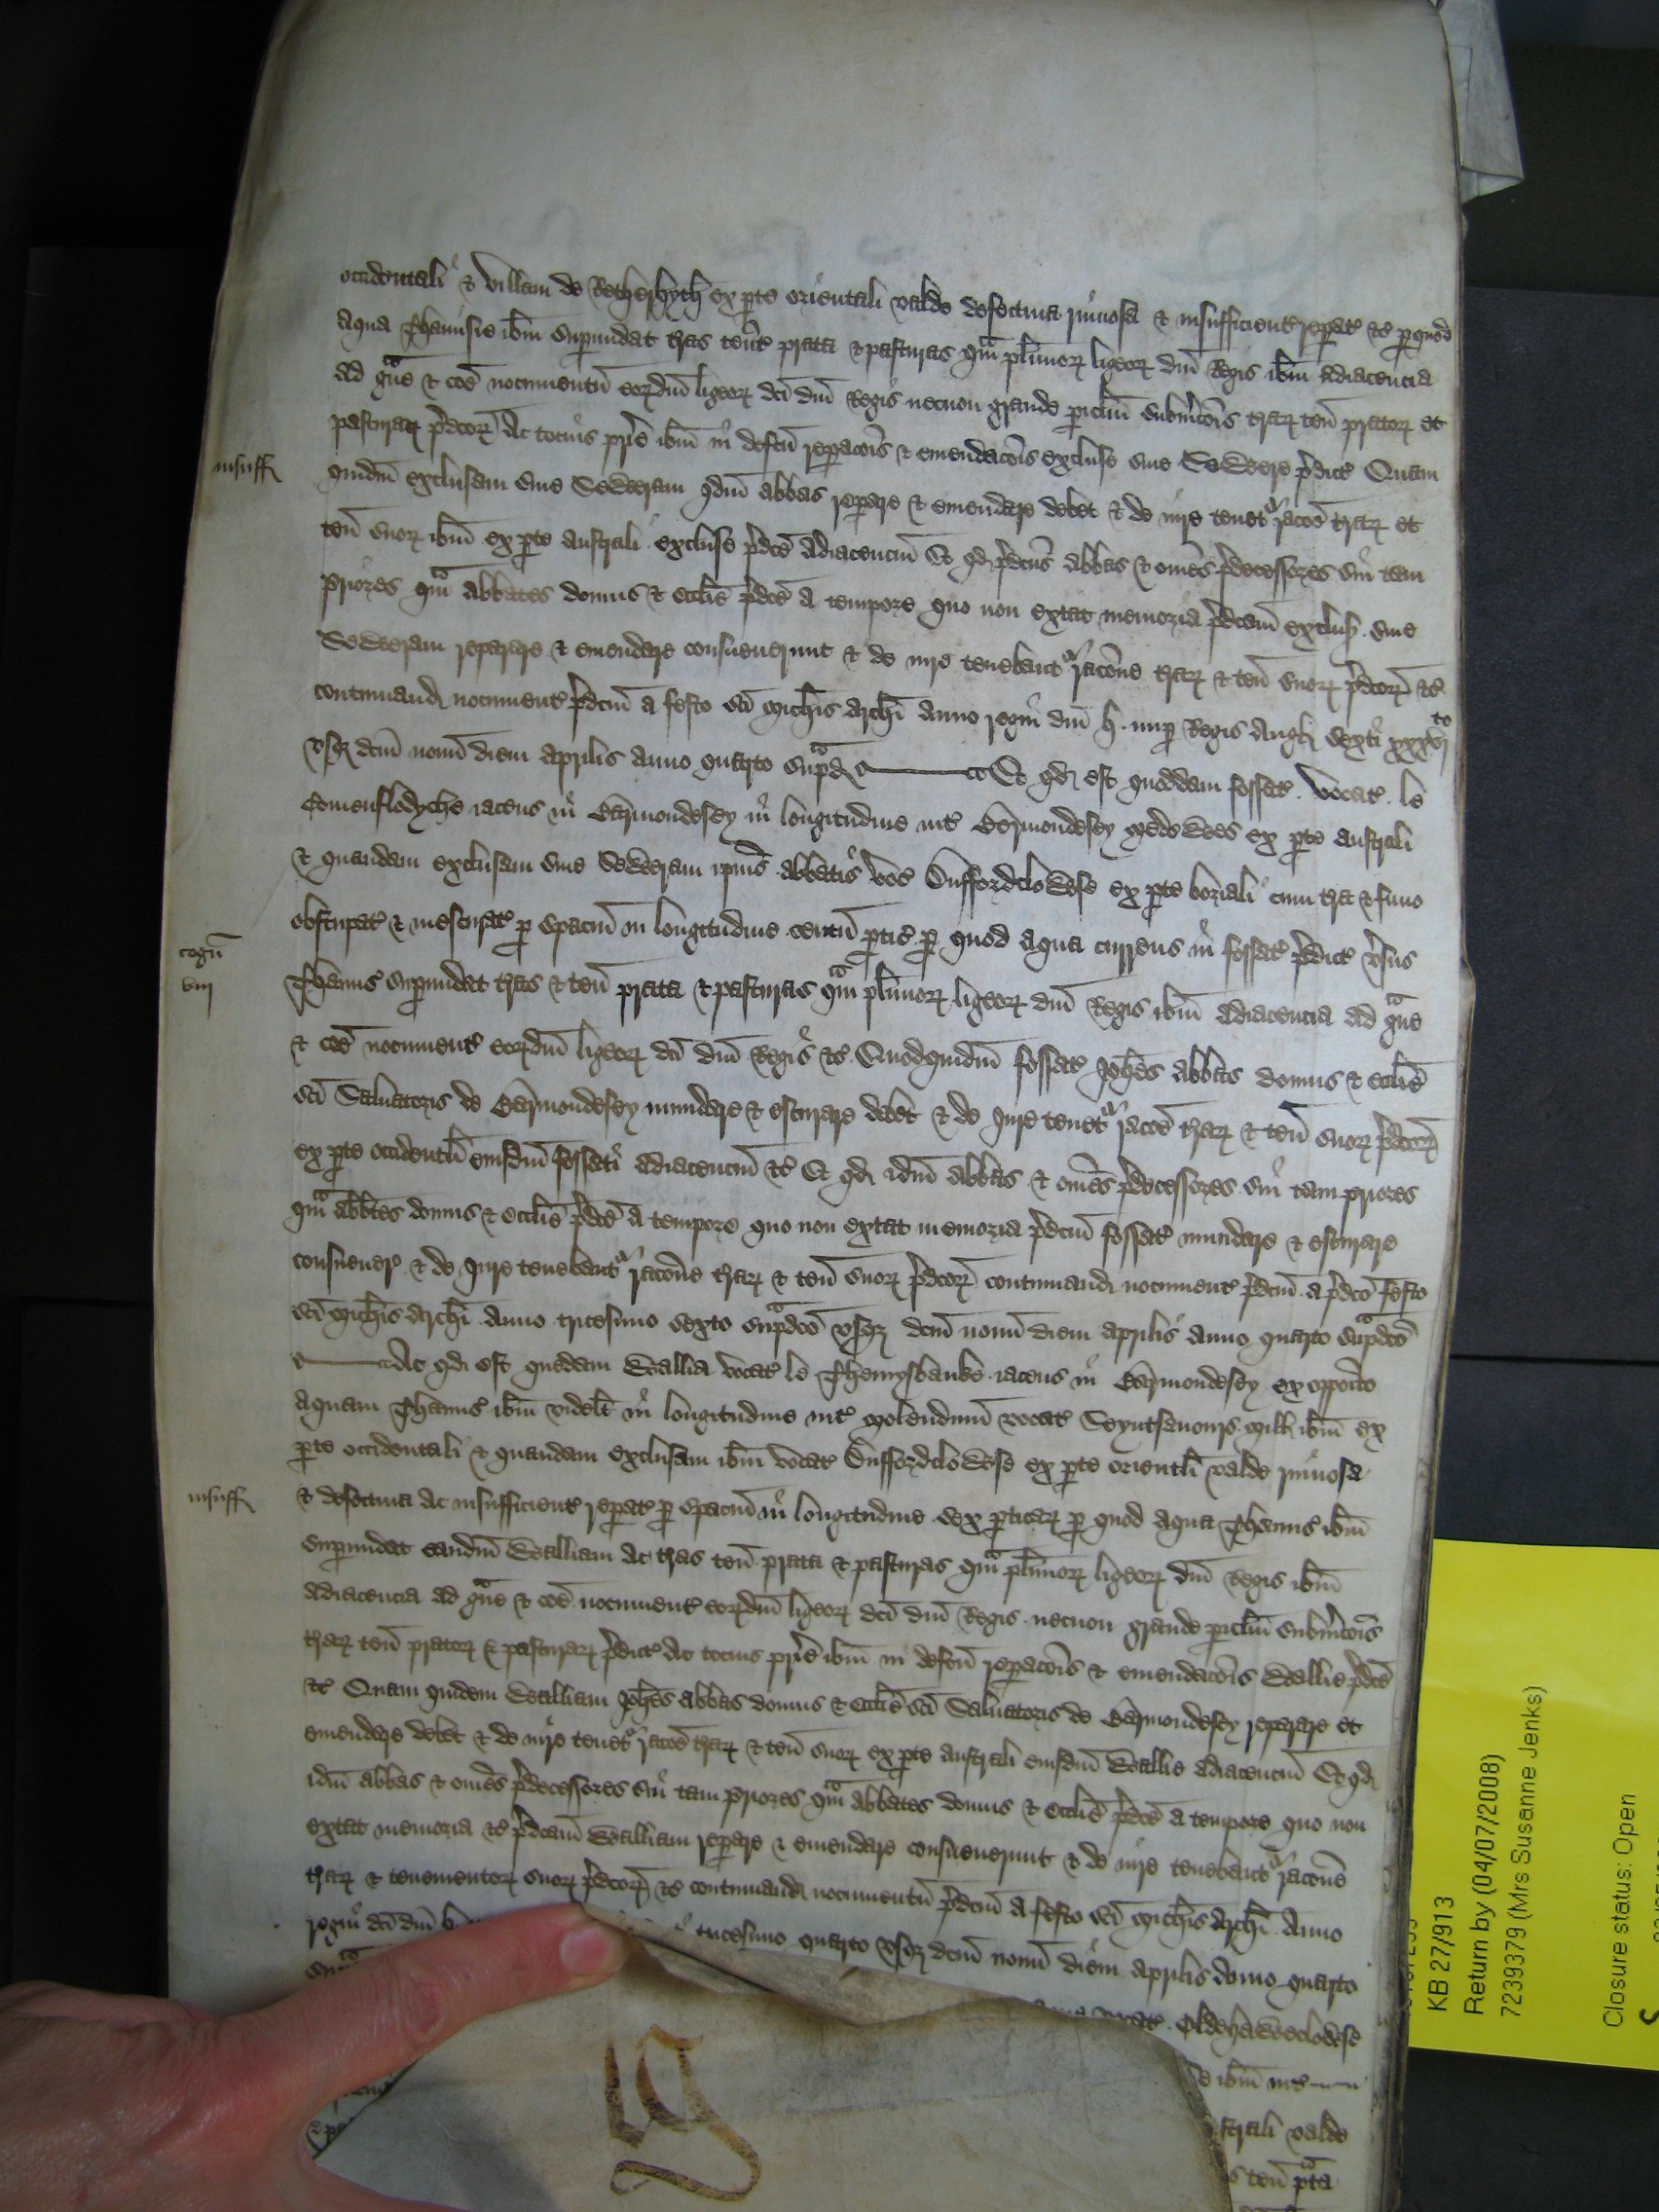 occidentali & villam de Retherhyth ex pte orientali valde defectiua ruinosa & insufficient repat &c p quod
aqua Thamisie ibm supundat tras ten prata & pasturas qm plimor ligeor dni Regis ibm adiacencia
ad gue & coe nocumentu eordm ligeor dci dni Regis necnon grande piclm submcois trar ten prator et
pasturar pdcor Ac tocius prie ibm in defcu repacois & emendacois excluse siue Seweere pdict Quam
insuff
quidm exclusam siue Seweram qdm abbas repare & emendare debet & de iure tenet racoe trar et
ten suor ibm ex pte australi excluse pdce adiacenciu Et qd pdcus abbas & omes pdecessores sui tam
priores qm abbates domus & ecclie pdce a tempore quo non extat memoria pdcam exclus siue
Seweram reparare & emendare consueuerunt & de iure tenebant racone trar & ten suor pdcor &c
continuand nocument pdcm a festo sci Michis Archi anno regni dni h nup Regis Angl sexti xxxvjto
vsq dcm nonu diem Aprilis anno quarto supd Et qd est quoddam fossat vocat le
Comenslodyche iacens in Bermondesey in longitudine int Bermondesey Medowes ex pte australi
& quandam exclusam siue Seweram ipius abbatis voc Duffordclowse ex pte boriali cum tra & fimo
obstupat & inescurat p spaciu in longitudine centu ptic p quod aqua currens in fossat pdict vsus
cogn
viij
Thamis supundat tras & ten prata & pasturas qm plimor ligeor dni Regis ibm adiacencia ad gue
& coe nocument eordm ligeor dci dni Regis &c Quodquidm fossat Johes abbas domus & ecclie
sci Saluatoris de Bermondesey mundare & escurare debet & de Jure tenet racoe trar & ten suor pdcor
ex pte occidentli eiusdm fossati adiacenciu &c Et qd idm abbas & omes pdecessores sui tam priores
qm abbtes domus & ecclie pdce a tempore quo non extat memoria pdcm fossat mundare & escurare
consueuer & de Jure tenebant racone trar & ten suor pdcor continuand nocument pdcm a pdco festo
sci Michis Archi anno tricesimo sexto supdco vsq dcm nonu diem Aprilis anno quarto supdco
Ac qd est quedam Wallia vocat le Themysbanke iacens in Bermondesey ex opposito
aquam Thamis ibm videlt in longitudine int Molendinu vocat Seyntsauours mill ibm ex
pte occidentali & quandam exclusam ibm vocat Duffordclowse ex pte orientli valde ruinosa
insuff
& defectiua ac insufficient repat p spaciu in longitudine sex pticar p quod aqua Thamis ibm
supundat eandm Walliam ac tras ten prata & pasturas qm plimor ligeor dni Regis ibm
adiacencia ad gue & coe nocument eordm ligeor dci dni Regis necnon grande piclm submcois
trar ten prator & pasturar pdict Ac tocius prie ibm in defcu repacois & emendacois Wallie pdce
&c Quam quidem Walliam Johes abbas domus & ecclie sci Saluatoris de Bermondesey reparare et
emendare debet & de iure tenet racoe trar & ten suor ex pte australi eiusdm Wallie adiacenciu Et qd
idm abbas & omes pdecessores sui tam priores qm abbates domus & ecclie pdce a tempore quo non
extat memoria &c pdcam Walliam repare & emendare consueuerunt & de iure tenebant racone
trar & tenementor suor pdcor &c continuand nocumentu pdcm a festo sci Michis Archi Anno
regni dci dni h tricesimo quarto vsq dcm nonu diem Aprilis Anno quarto
vocat Oldehaweclowse
ibm int
australi valde
ten pta
KB 27/913
Return by (04/07/2008)
7239379 (Mrs Susanne Jenks)
Closure status: Open